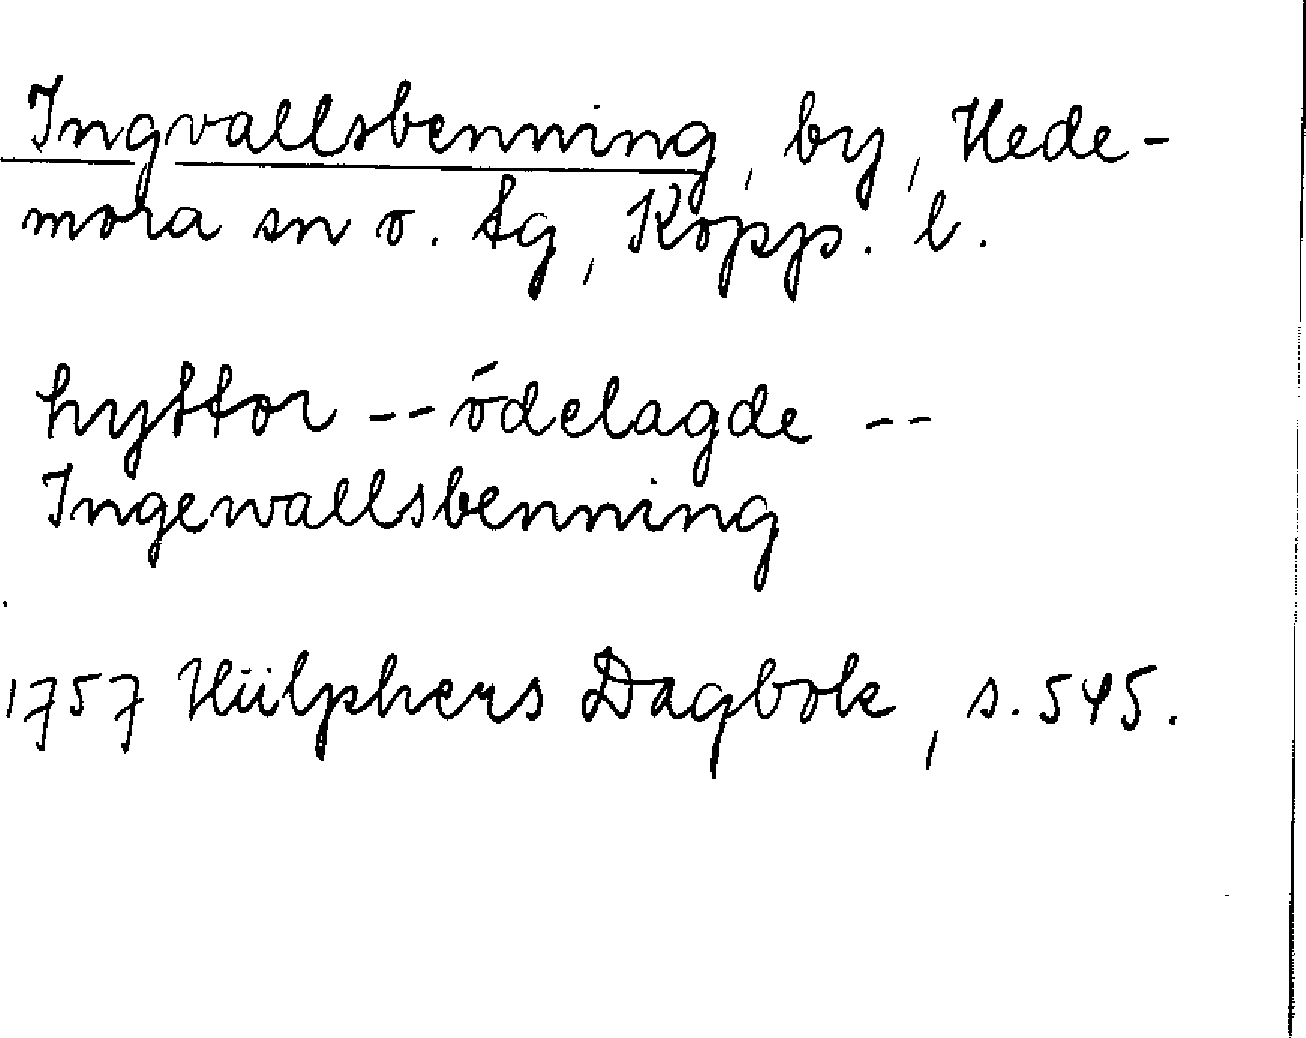 Ingvallsbenning, by, Hede-
mora sn o. tg, Kopp. l.
hyttor -- ödelagde --
Ingewallsbenning
1757 Hülphers Dagbok, s. 545.